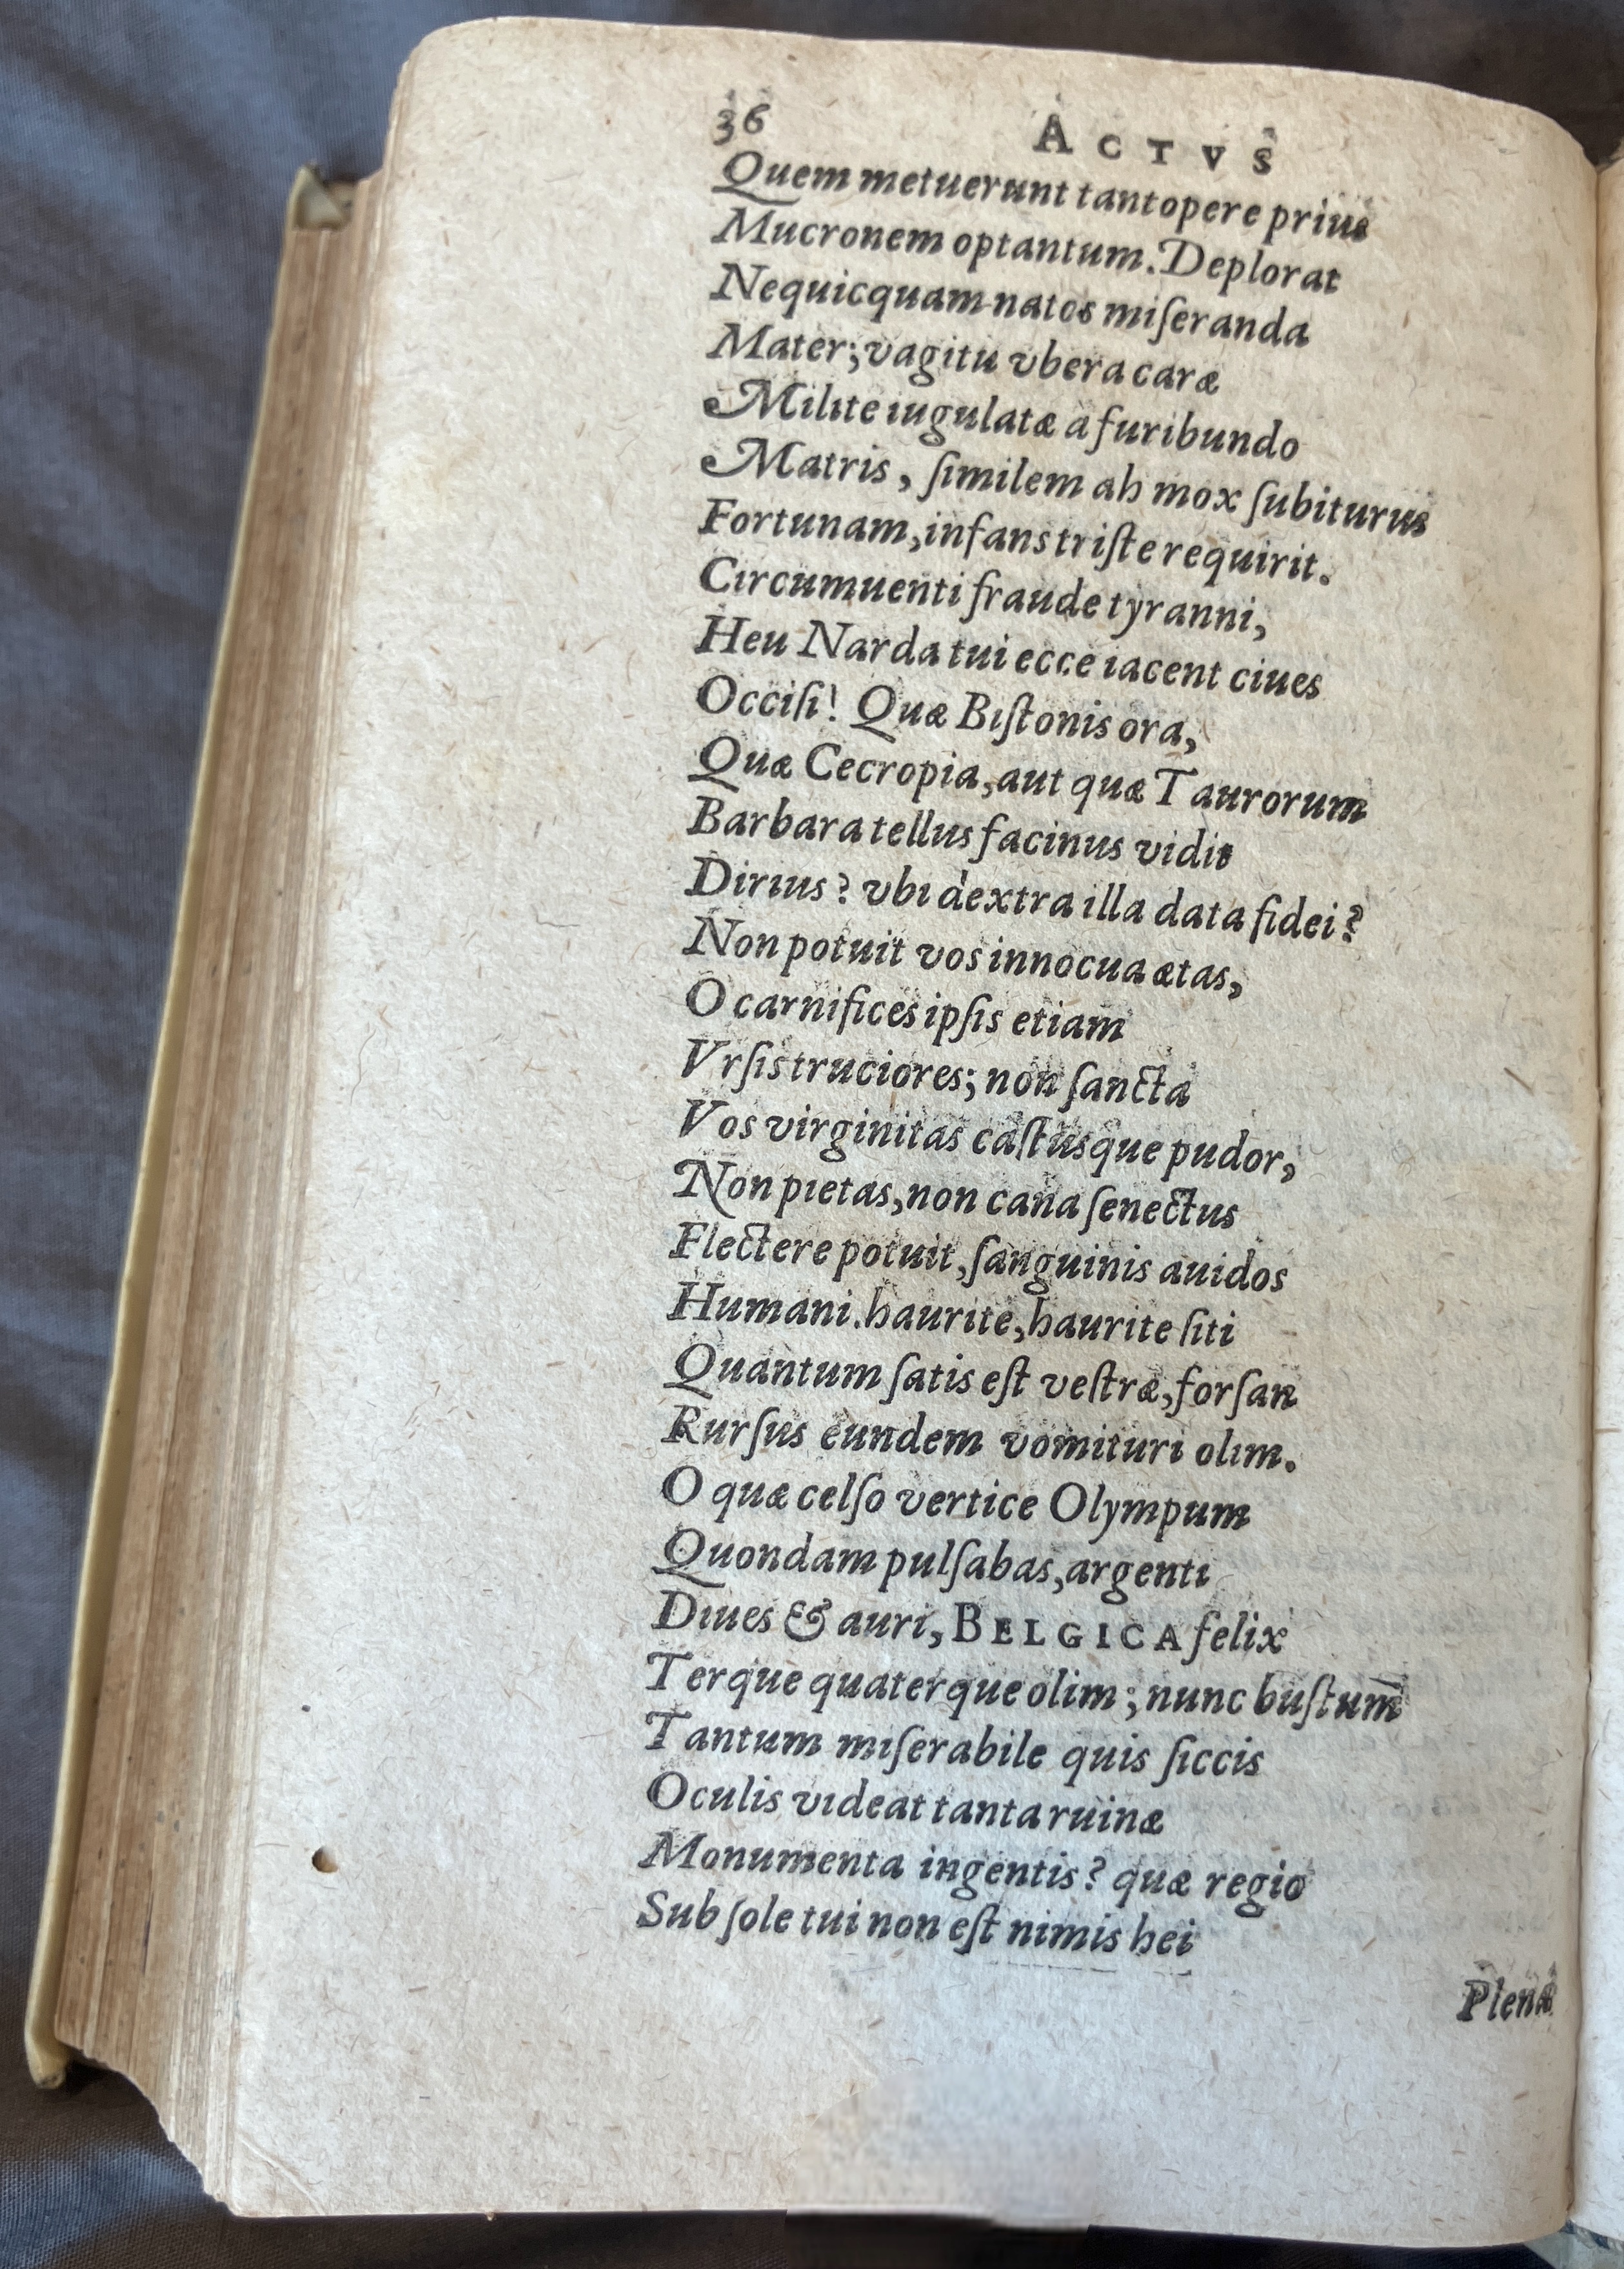 36 ACTVS
Quem metuerunt tantopere prius
Mucronem optantum. Deplorat
Nequicquam natos miſeranda
Mater; vagitu vbera caræ
Milite iugulatæ a furibundo
Matris, ſimilem ah mox ſubiturus
Fortunam, infans triſte requirit.
Circumuenti fraude tyranni,
Heu Narda tui ecce iacent ciues
Occiſi! Quæ Biſtonis ora,
Quæ Cecropia, aut quæ Taurorum
Barbara tellus facinus vidit
Dirius? vbi dextra illa data fidei?
Non potuit vos innocua ætas,
O carnifices ipſis etiam
Vrſis truciores; non ſancta
Vos virginitas caſtusque pudor,
Non pietas, non cana ſenectus
Flectere potuit, ſanguinis auidos
Humani. haurite, haurite ſiti
Quantum ſatis eſt veſtræ, forſan
Rurſus eundem vomituri olim.
O quæ celſo vertice Olympum
Quondam pulſabas, argenti
Diues & auri, BELGICA felix
Terque quaterque olim; nunc buſtum
Tantum miſerabile quis ſiccis
Oculis videat tanta ruinæ
Monumenta ingentis? quæ regio
Sub ſole tui non eſt nimis hei
Plena